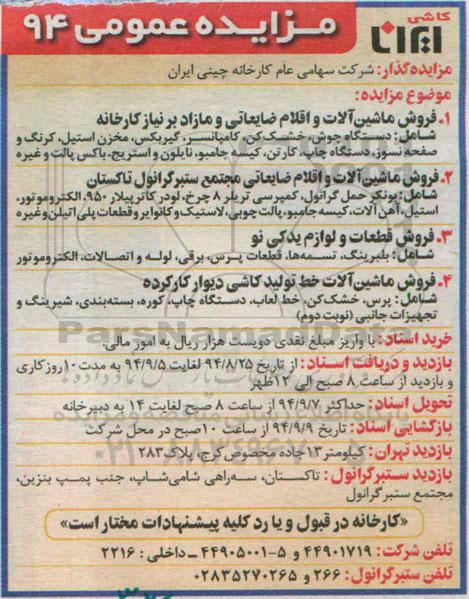 کاشی
ایرانا
مزایده عمومی ۹۴
مزایده‌گذار: شرکت سهامی عام کارخانه چینی ایران
موضوع مزایده:
۱- فروش ماشین‌آلات و اقلام ضایعاتی و مازاد بر نیاز کارخانه
شامل: دستگاه جوش، خشک‌کن، کامپانسر، گیربکس، مخزن استیل، کرنگ و
صفحه نسوز، دستگاه چاپ، کارتن، کیسه جامبو، نایلون و استریج، باکس پالت و غیره
۲- فروش ماشین‌آلات و اقلام ضایعاتی مجتمع ستبرگرانول تاکستان
شامل: بونکر حمل گرانول، کمپرسی تریلر ۸ چرخ، لودر کاترپیلار ۹۵۰، الکتروموتور،
استیل، آهن آلات، کیسه جامبو، پالت چوبی، لاستیک و کانوایر و قطعات پلی اتیلن و غیره
۳- فروش قطعات و لوازم یدکی نو
شامل: بلبرینگ، تسمه‌ها، قطعات پرس، برقی، لوله و اتصالات، الکتروموتور
۴- فروش ماشین‌آلات خط تولید کاشی دیوار کارکرده
شامل: پرس، خشک‌کن، خط لعاب، دستگاه چاپ، کوره، بسته‌بندی، شیرینگ و
تجهیزات جانبی (نوبت دوم)
خرید اسناد: با واریز مبلغ نقدی دویست هزار ریال به امور مالی.
بازدید و دریافت اسناد: از تاریخ ۹۴/۸/۲۵ لغایت ۹۴/۹/۵ به مدت ۱۰ روز کاری
و بازدید از ساعت ۸ صبح الی ۱۲ ظهر
تحویل اسناد: حداکثر ۹۴/۹/۷ از ساعت ۸ صبح لغایت ۱۴ به دبیرخانه
بازگشایی اسناد: تاریخ ۹۴/۹/۹ از ساعت ۱۰ صبح در محل شرکت
بازدید تهران: کیلومتر ۱۳ جاده مخصوص کرج، پلاک ۲۸۳
بازدید ستبرگرانول: تاکستان، سه‌راهی شامی‌شاپ، جنب پمپ بنزین،
مجتمع ستبرگرانول
«کارخانه در قبول و یا رد کلیه پیشنهادات مختار است»
تلفن شرکت: ۴۴۹۰۱۷۱۹ و ۵-۴۴۹۰۵۰۰۱ - داخلی: ۲۲۱۶
تلفن ستبرگرانول: ۲۶۶ و ۰۲۸۳۵۲۷۰۲۶۵
ParsNamadData